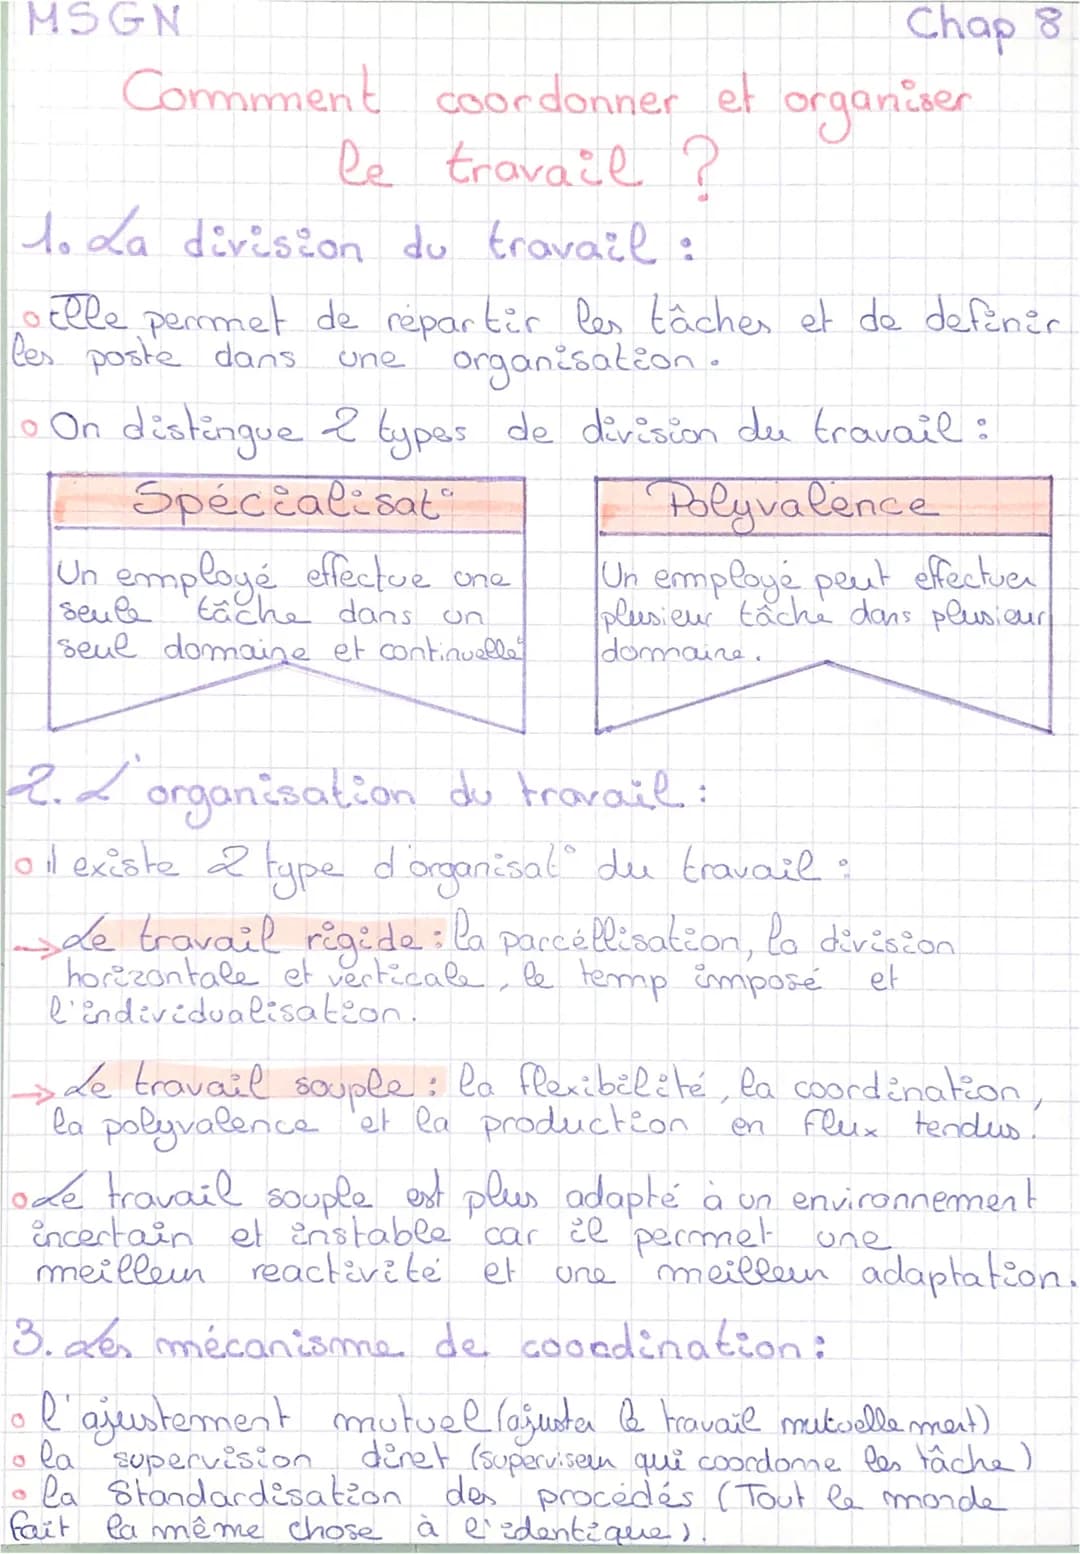 MSGN
Chap 8
Commment coordonner et organiser
le travail ?
1. La division du travail :
Elle permet de répartir les tâches et de definir
les poste dans une organisation.
On distingue 2 types de division du travail :
Spécialisat°
Un employé effectue une
seule tâche dans un
seul domaine et continuelle
Polyvalence
Un employé peut effectuer
plusieur tâche dans plusieur
domaine.
2. L'organisation du travail :
il existe 2 type d'organisat° du travail :
→ Le travail rigide : la parcéllisation, la division
horizontale et verticale, le temp imposé et
l'individualisation.
→ Le travail souple : la flexibilité, la coordination,
la polyvalence et la production en flux tendus.
Le travail souple est plus adapté à un environnement
incertain et instable car il permet une
meilleur reactivité et une meilleur adaptation.
3. Les mécanisme de coordination :
l'ajustement mutuel (ajuster le travail mutuellement)
la supervision diret (superviseur qui coordonne les tâche)
la standardisation des procédés (Tout le monde
fait la même chose à l'identique).